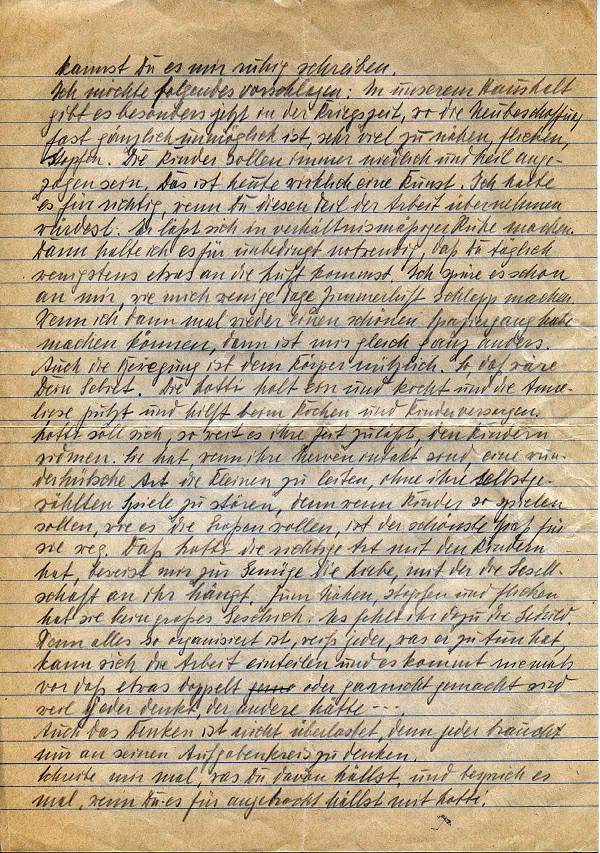 kannst Du es mir ruhig schreiben.
Ich möchte folgendes vorschlagen: In unserem Haushalt
gibt es besonders jetzt in der Kriegszeit, wo die Neubeschaffung
fast gänzlich unmöglich ist, sehr viel zu nähen, flicken,
stopfen. Die Kinder sollen immer niedlich und heil ange-
zogen sein. Das ist heute wirklich eine Kunst. Ich halte
es für richtig, wenn Du diesen Teil der Arbeit übernehmen
würdest. Er läßt sich in verhältnismäßiger Ruhe machen.
Dann halte ich es für unbedingt notwendig, daß Du täglich
wenigstens etwas an die Luft kommst. Ich spüre es schon
an mir, wie mich wenige Tage Zimmerluft schlapp machen.
Wenn ich dann mal wieder einen schönen Spaziergang habe
machen können, dann ist mir gleich ganz anders.
Auch die Bewegung ist dem Körper nützlich. So das wäre
Dein Gebiet. Die Lotti holt ein und kocht und die Anne-
liese putzt und hilft beim Kochen und Kinderversorgen.
Lotti soll sich, so weit es ihre Zeit zuläßt, den Kindern
widmen. Sie hat, wenn ihre Nerven intakt sind, eine wun-
derhübsche Art die Kleinen zu leiten, ohne ihre selbstge-
wählten Spiele zu stören, denn wenn Kinder so spielen
sollen, wie es die Großen wollen, ist der schönste Spaß für
sie weg. Daß Lotti die richtige Art mit den Kindern
hat, beweist mir zur Genüge die Liebe, mit der die Gesell-
schaft an ihr hängt. Zum Nähen, stopfen und flicken
hat sie kein großes Geschick. Es fehlt ihr dazu die Geduld.
Wenn alles so organisiert ist, weiß jeder, was er zu tun hat,
kann sich die Arbeit einteilen und es kommt niemals
vor daß etwas doppelt oder garnicht gemacht wird
weil jeder denkt, der andere hätte ---.
Auch das Denken ist nicht überlastet, denn jeder braucht
nur an seinen Aufgabenkreis zu denken.
Schreibe mir mal, was Du davon hältst, und besprich es
mal, wenn Du es für angebracht hältst mit Lotti.